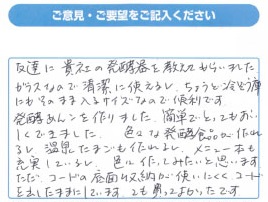 ご意見・ご要望をご記入ください
友達に貴社の発酵器を教えてもらいました
ガラスなので清潔に使えるし、ちょうど冷ぞう庫
にもそのまま入るサイズなので便利です。
発酵あんこを作りました。簡単でとってもおい
しくできました。色々な発酵食品が作れ
るし、温泉たまごも作れるし、メニュー本も
充実しているし、色々作ってみたいと思います
ただ、コードの底面収納が使いにくく、コード
を出したままにしています。でも買ってよかったです